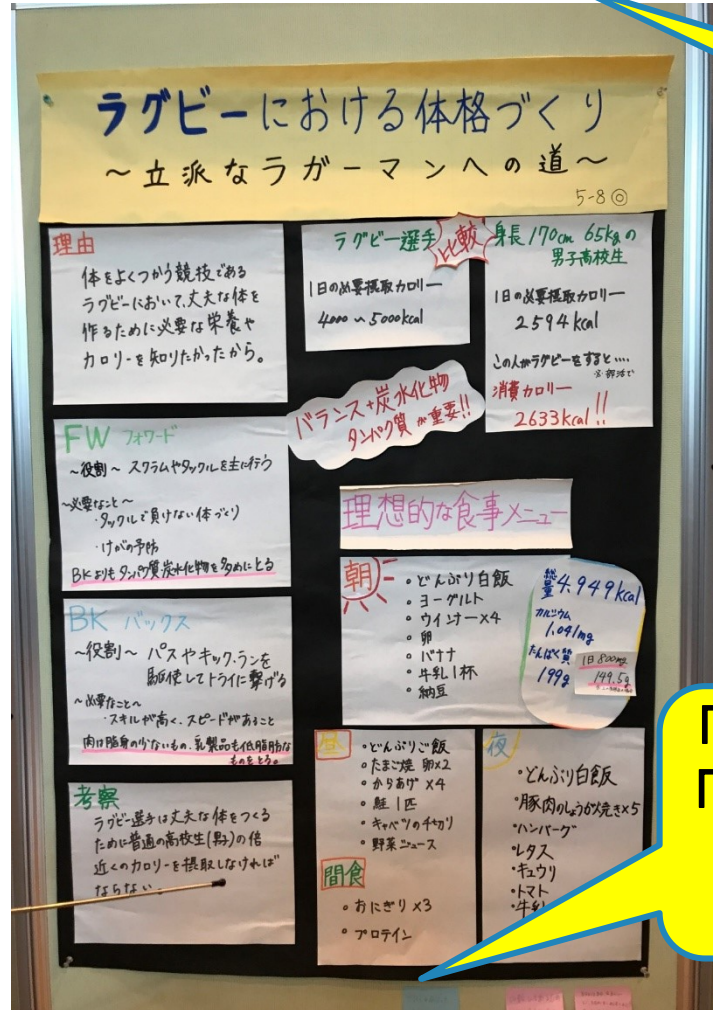 ラグビーにおける体格づくり
～立派なラガーマンへの道～
5-8◎
理由
体をよくつかう競技である
ラグビーにおいて、丈夫な体を
作るために必要な栄養や
カロリーを知りたかったから。
ラグビー選手
1日の必要摂取カロリー
4000～5000kcal
比較
身長170cm 65kgの
男子高校生
1日の必要摂取カロリー
2594kcal
この人がラグビーをすると‥‥
※部活で
消費カロリー
2633kcal!!
バランス+炭水化物
タンパク質が重要!!
FW フォワード
～役割～ スクラムやタックルを主に行う
～必要なこと～
・タックルで負けない体づくり
・けがの予防
BKよりもタンパク質炭水化物を多めにとる
BK バックス
～役割～ パスやキック・ランを
駆使してトライに繋げる
～必要なこと～
・スキルが高く、スピードがあること
肉は脂身の少ないもの、乳製品も低脂肪な
ものをとる。
考察
ラグビー選手は丈夫な体をつくる
ために普通の高校生(男)の倍
近くのカロリーを摂取しなければ
ならない。
理想的な食事メニュー
朝
・どんぶり白飯
・ヨーグルト
・ウインナー×4
・卵
・バナナ
・牛乳1杯
・納豆
総量4,949kcal
カルシウム
1,041mg
たんぱく質
199g
1日800mg
149.5g
昼
・どんぶりご飯
・たまご焼 卵×2
・からあげ ×4
・鮭 1匹
・キャベツの千切り
・野菜ジュース
間食
・おにぎり ×3
・プロテイン
夜
・どんぶり白飯
・豚肉のしょうが焼き×5
・ハンバーグ
・レタス
・キュウリ
・トマト
・牛乳
「
「